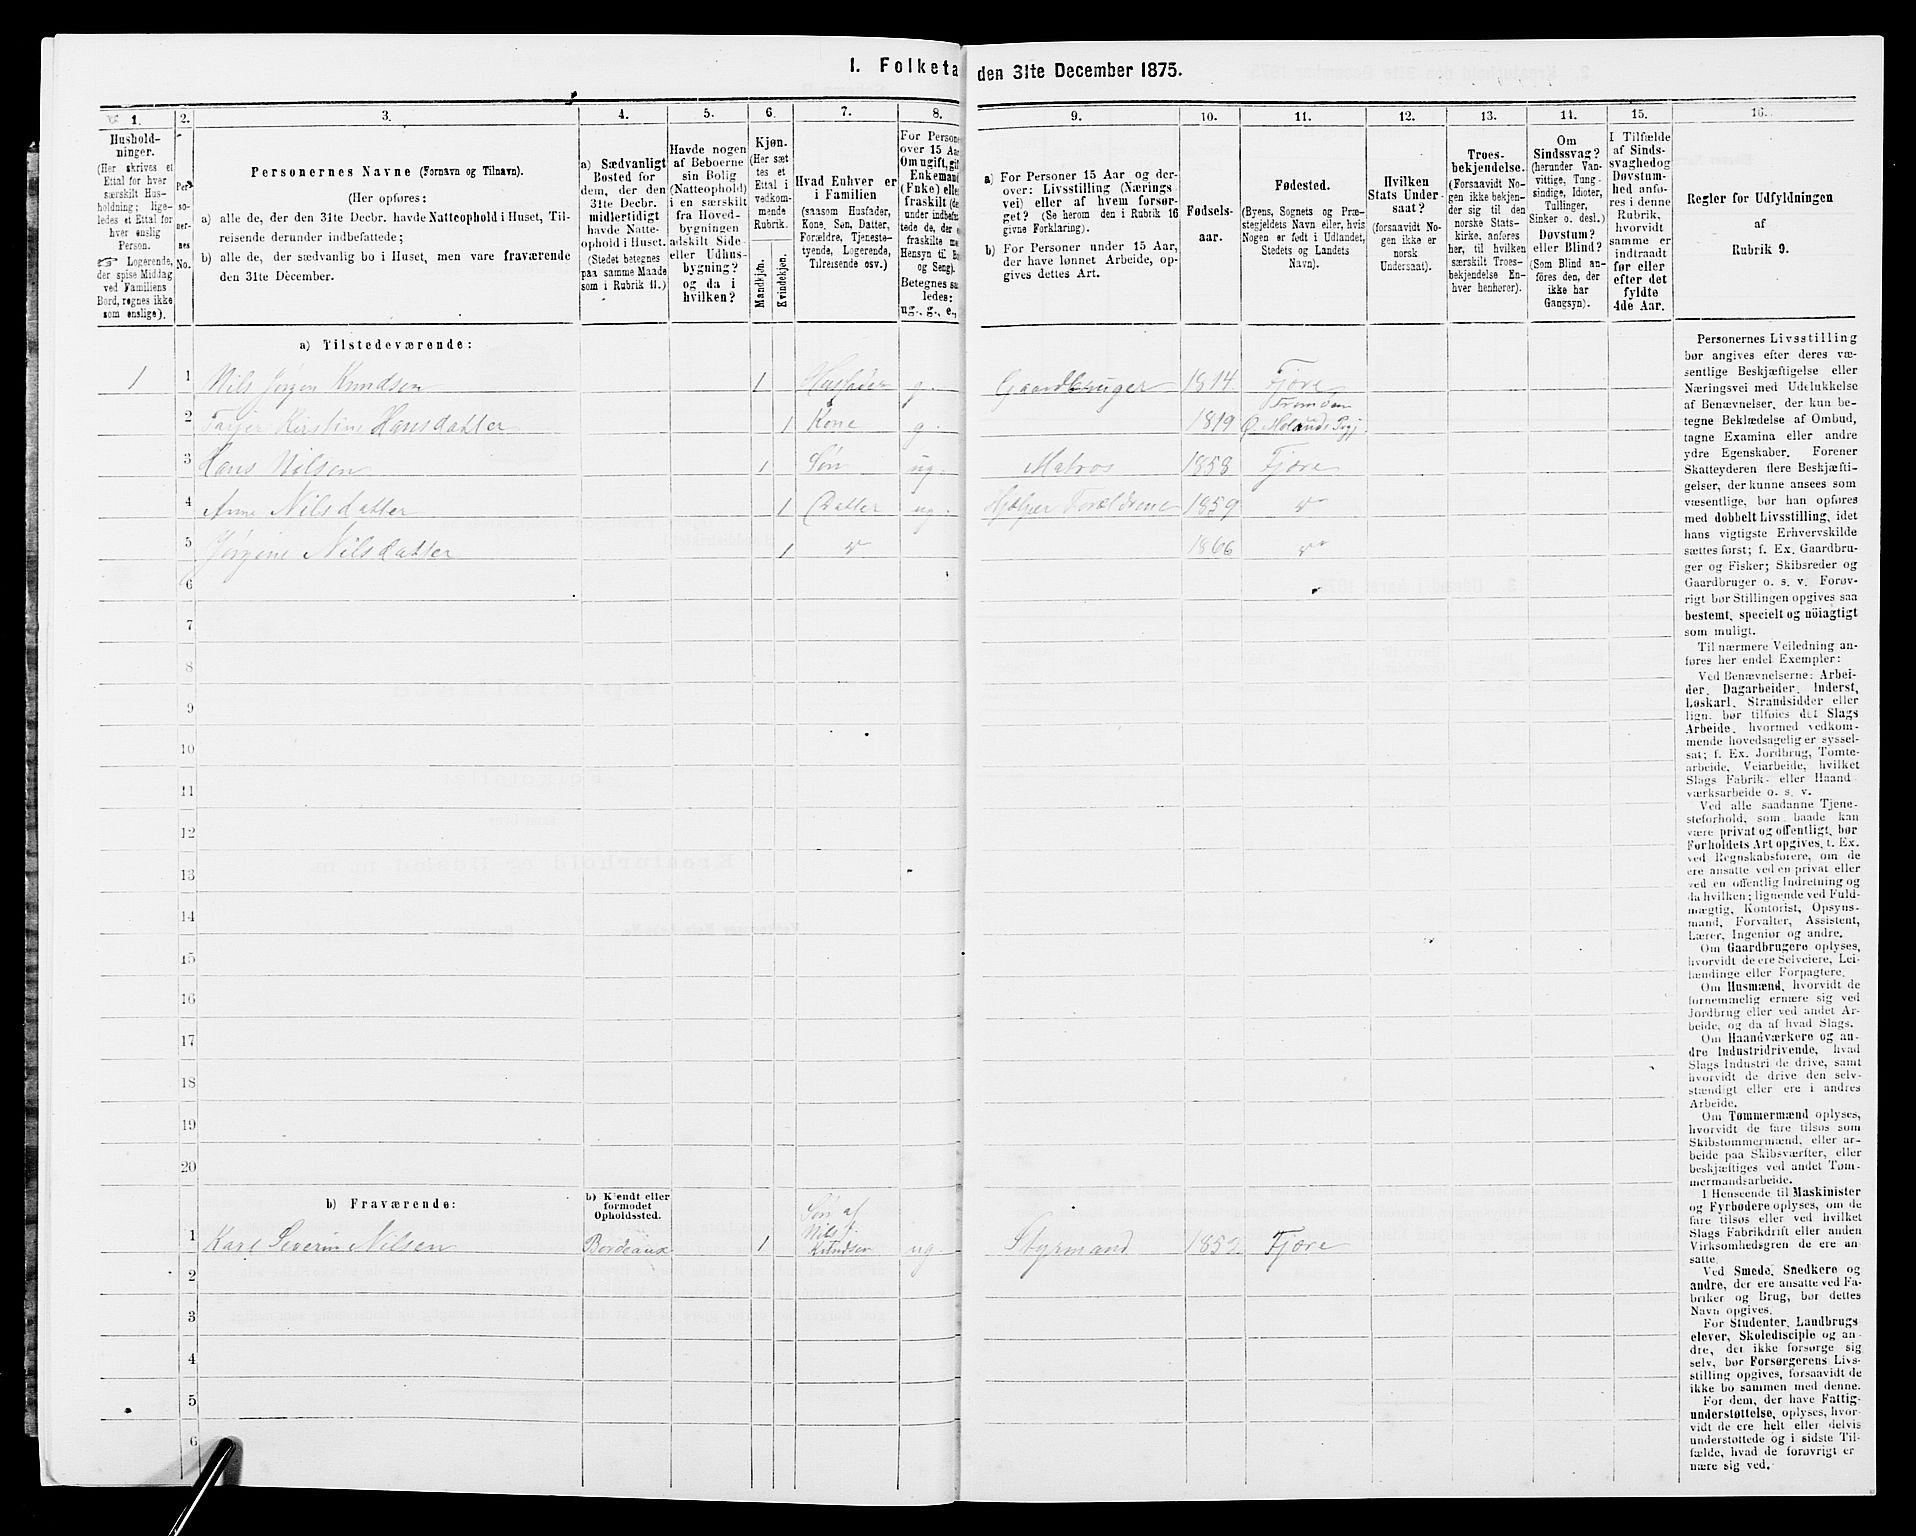 1. Folketa
den 31te December 1875.
1. 2. 3. 4. 5. 6. 7. 8. 9. 10. 11. 12. 13. 14. 15. 16.
Hushold-
ninger.
(Her skrives et
Ettal for hver
særskilt Hus-
holdning; lige-
ledes et Ettal for
hver enslig
Person.
☞ Logerende,
der spise Middag
ved Familiens
Bord, regnes ikke
som enslige).
Per-
so-
ner-
nes
No.
Personernes Navne (Fornavn og Tilnavn).
(Her opføres:
a) alle de, der den 31te Decbr. havde Natteophold i Huset, Til-
reisende derunder indbefattede;
b) alle de, der sædvanlig bo i Huset, men vare fraværende
den 31te Dècember.
a) Sædvanligt
Bosted for
dem, der den
31te Decbr.
midlertidigt
havde Natte-
ophold i Huset.
(Stedet betegnes
paa samme Maade
som i Rubrik 11.)
Havde nogen
af Beboerne
sin Bolig
(Natteophold)
i en særskilt
fra Hoved-
bygningen
adskilt Side-
eller Udhus-
bygning?
og da i
hvilken?
Kjøn.
(Her sæt-
tes et
Ettal i
vedkom-
mende
Rubrik.
Mandkjøn.
Kvindekjøn.
Hvad Enhver er
i Familien
(saasom Husfader,
Kone, Søn, Datter,
Forældre, Tjeneste-
tyende, Logerende,
Tilreisende osv.)
For Persone
over 15 Aa
Om ugift, gif
Enkemand
(Enke) elle
fraskilt (de
under indbefa
tede de, der e
fraskilte me
Hensyn til Bo
og Seng).
Betegnes saa
ledes:
ug., g., e.,
a) For Personer 15 Aar og der-
over: Livsstilling (Nærings
vei) eller af hvem forsør-
get? (Se herom den i Rubrik 16
givne Forklaring).
b) For Personer under 15 Aar,
der have lønnet Arbeide, op-
gives dettes Art.
Fødsels-
aar.
Fødested.
(Byens, Sognets og Præ-
stegjeldets Navn eller, hvis
Nogen er født i Udlandet,
Stedets og Landets
Navn).
Hvilken
Stats Under-
saat?
(forsaavidt No-
gen ikke er
norsk
Undersaat).
Troes-
bekjendelse.
(Forsaavidt No-
gen ikke bekjen-
der sig til den
norske Stats-
kirke, anføres
her, til hvilken
særskilt Troes-
bekjendelse En-
hver henhører).
Om
Sindssvag?
(herunder Van-
vittige, Tung-
sindige, Idioter,
Tullinger,
Sinker o. desl.)
Døvstum?
eller Blind?
(Som Blind an-
føres den, der
ikke har
Gangsyn).
I Tilfælde
af Sinds-
svaghedog
Døvstum-
hed anfø-
res i denne
Rubrik,
hvorvidt
samme er
indtraadt
før eller
efter det
fyldte
4de Aar.
Regler for Udfyldningen
af
Rubrik 9.
a) Tilstedeværende:
1 1 Nils Jørgen Knudsen 1 Husfader g. Gaardbruger 1814. Fjære
2 Kirstine Hansdatter 1 Kone g. 1819 Ø. Molands Prgj
3 Hans Nilsen 1 Søn ug. Matros 1858 Fjære
4 Anne Nilsdatter 1 Datter ug. Hjelper Forældrene 1859
5 Jørgine Nilsdatter 1 1866
6
7
8
9
10
11
12
13
14
15
16
17
18
19
20
b) Fraværende:
b) Kjendt eller
formodet
Opholdssted.
Søn af
Nils J.
1 Karl Severin Nilsen Bordeaux 1 Knudsen ug. Styrmand 1852. Fjære
2
3
4
5
6
Personernes Livsstilling
bør angives efter deres væ-
sentlige Beskjæftigelse eller
Næringsvei med Udelukkelse
af Benævnelser, der kun be-
tegne Beklædelse af Ombud,
tagne Examina eller andre
ydre Egenskaber. Forener
Skatteyderen flere Beskjæfti-
gelser, der kunne ansees som
væsentlige, bør han opføres
med dobbelt Livsstilling, idet
hans vigtigste Erhvervskilde
sættes først; f. Ex. Gaardbru-
ger og Fisker; Skibsreder og
Gaardbruger o. s. v. Forøv-
rigt bør Stillingen opgives saa
bestemt, specielt og nöiagtigt
som muligt.
Til nærmere Veiledning an-
føres her endel Exempler:
Ved Benævnelserne: Arbei-
der, Dagarbeider, Inderst,
Løskarl, Strandsidder eller
lign. bør tilføies det Slags
Arbeide, hvormed vedkom-
mende hovedsagelig er syssel-
sat; f. Ex. Jordbrug, Tomte-
arbeide, Veiarbeide, hvilket
Slags Fabrik- eller Haand-
værksarbeide o. s. v.
Ved alle saadanne Tjene-
steforhold, som baade kan
være privat og offentligt, bør
Forholdets Art opgives, f. Ex.
ved Regnskabsførere, om de
ere ansatte ved en privat eller
ved en offentlig Indretning og
da hvilken; lignende ved Fuld-
mægtig, Kontorist, Opsyns-
mand, Forvalter, Assistent,
Lærer, Ingeniør og andre.
Om Gaardbrugere oplyses,
hvorvidt de ere Selveiere, Lei-
lændinge eller Forpagtere.
Om Husmænd, hvorvidt de
fornemmelig ernære sig ved
Jordbrug eller ved andet Ar-
beide, og da af hvad Slags.
Om Haandværkere og an-
dre Industridrivende, hvad
Slags Industri de drive, samt
hvorvidt de drive den selv-
stændigt eller ere i andres
Arbeide.
Om Tømmermænd oplyses,
hvorvidt de fare tilsøs som
Skibstømmermænd, eller ar-
beide paa Skibsværfter, eller
beskjæftiges ved andet Tøm-
mermandsarbeide.
I Henseende til Maskinister
og Fyrbødere oplyses, om de
fare tilsøs eller ved hvilket
Slags Fabrikdrift eller anden
Virksomhedsgren de ere an-
satte.
Ved Smede, Snedkere og
andre, der ere ansatte ved Fa-
briker og Brug, bør dettes
Navn opgives.
For Studenter, Landbrugs
elever, Skoledisciple og an-
dre, der ikke forsørge sig
selv, bør Forsørgerens Livs-
stilling opgives, forsaavidt de
ikke bo sammen med denne.
For dem, der have Fattig-
understøttelse, oplyses, hvor-
vidt de ere helt eller delvis
understøttede og i sidste Til-
fælde, hvad de forøvrigt er
nære sig ved.